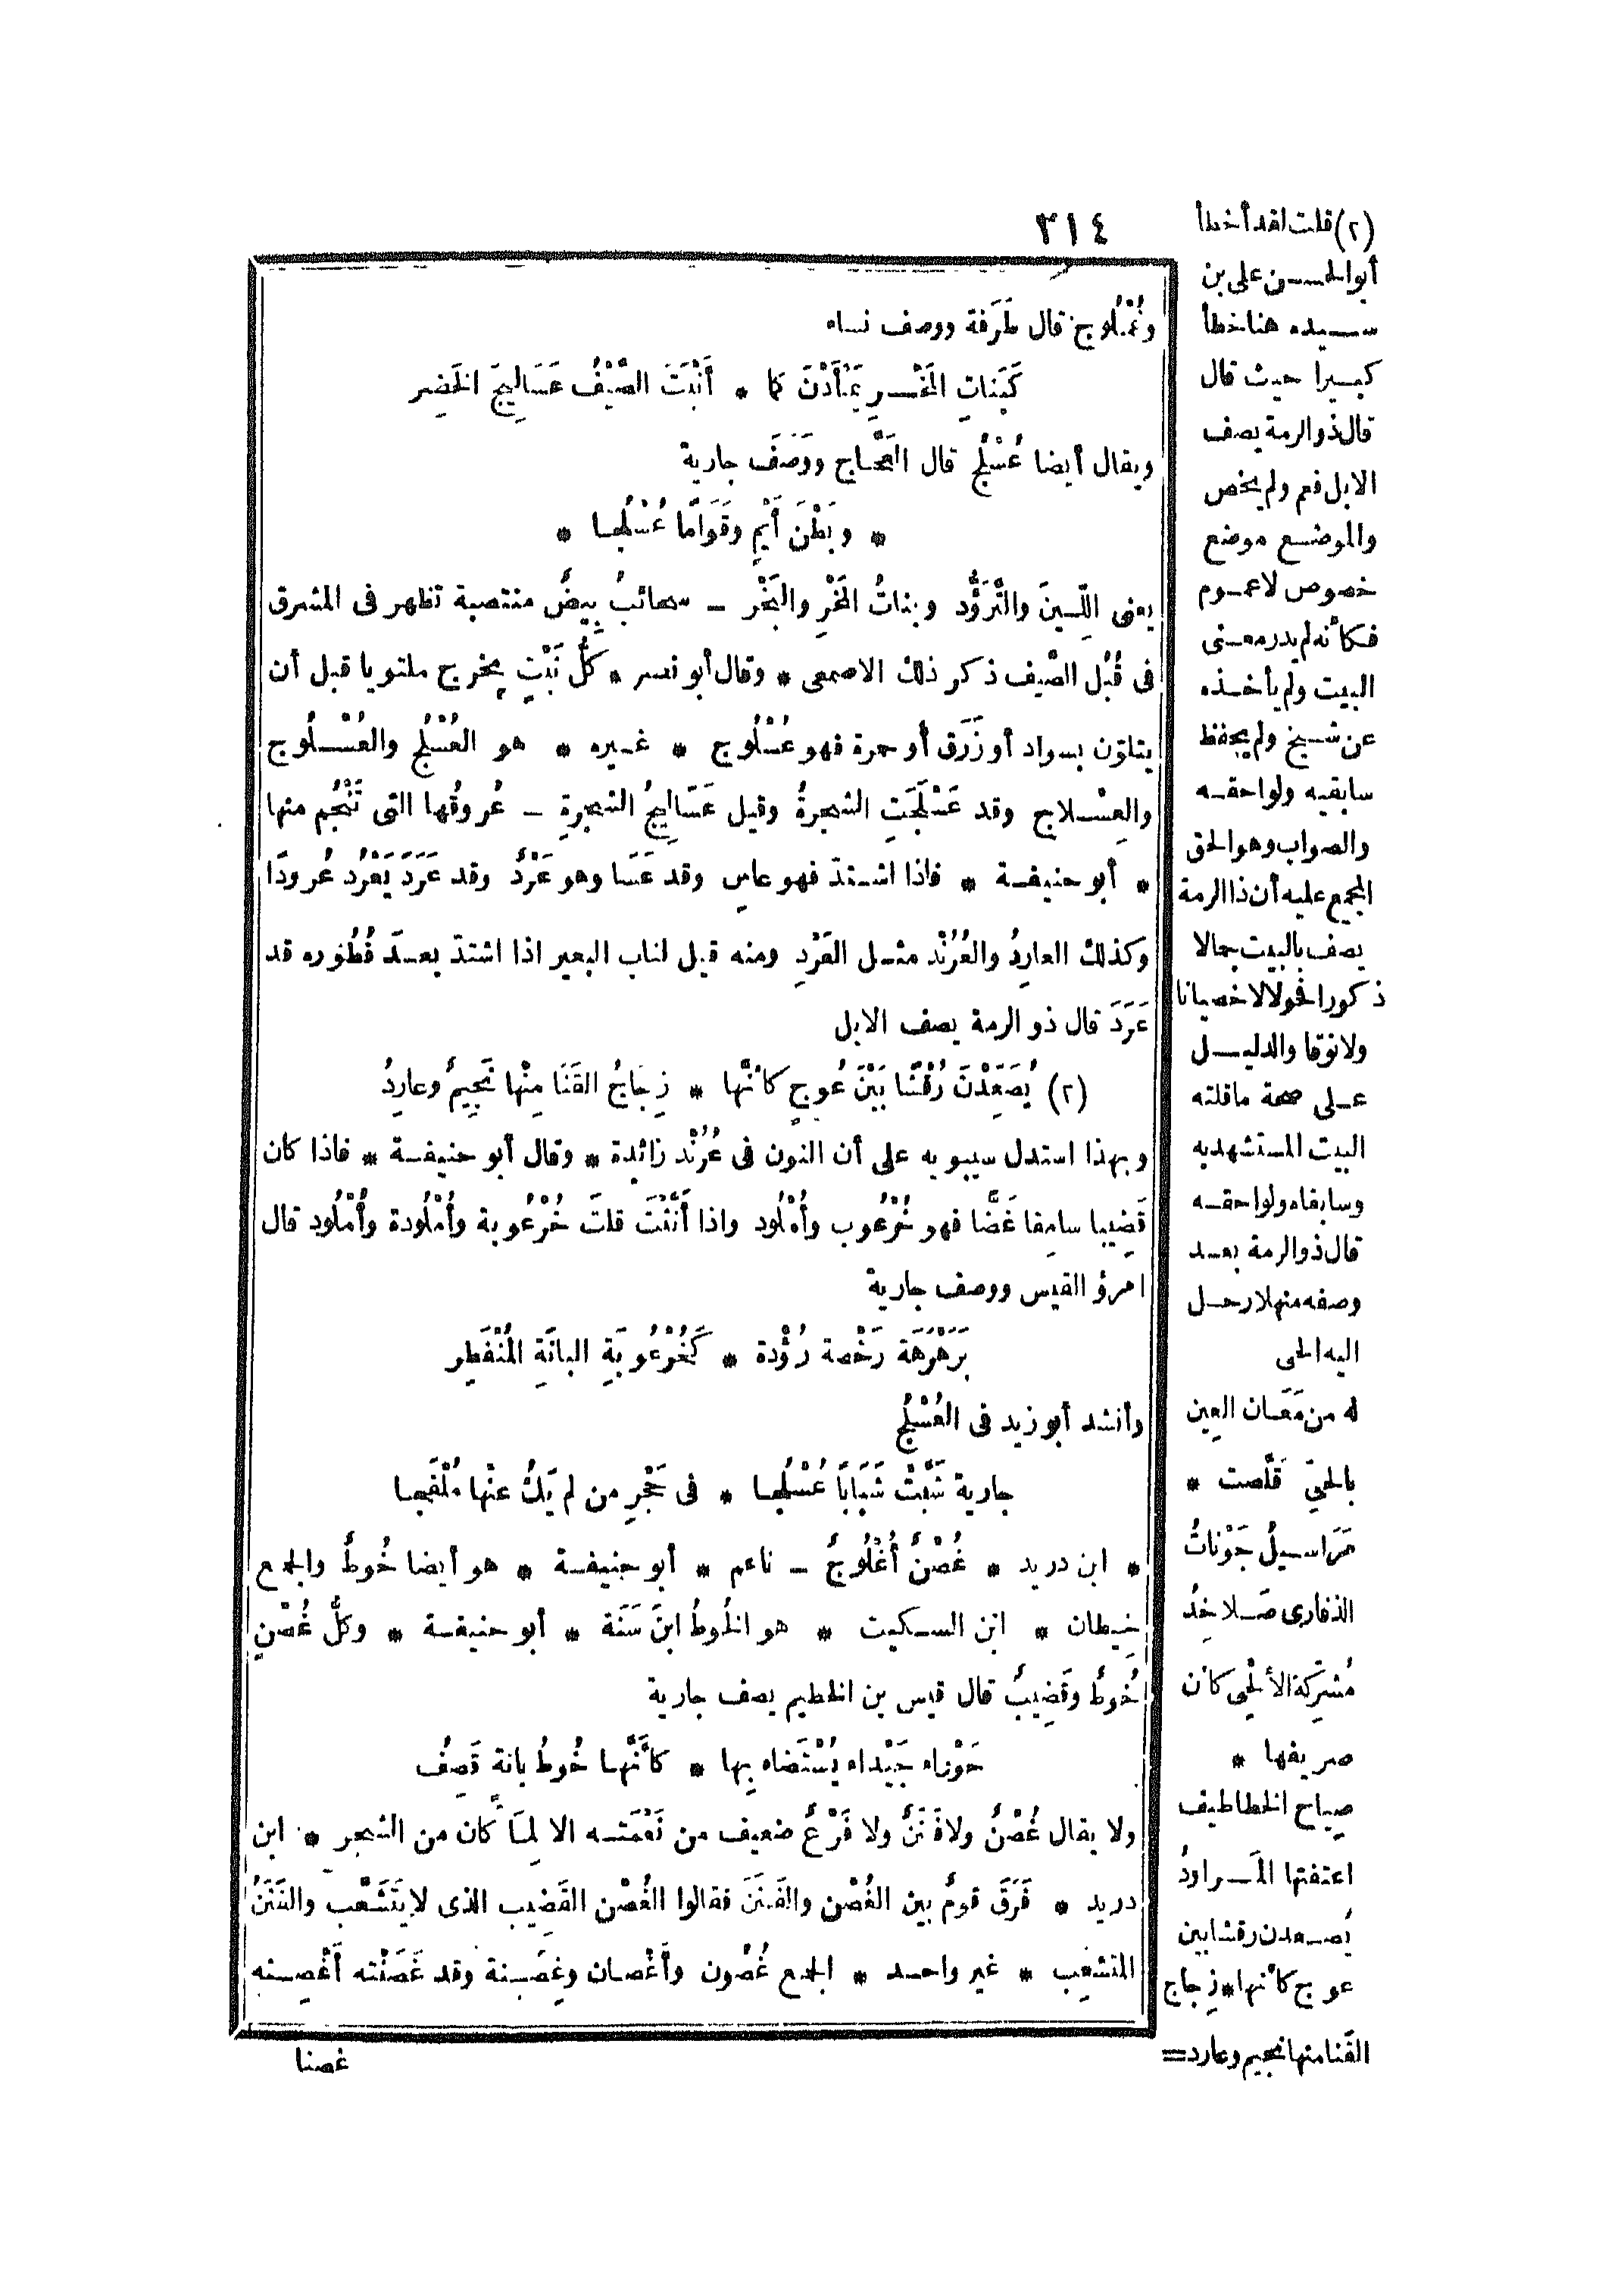 ٣١٤
وعُسْلُوج قال طَرَفة ووصف نساء
كَبَناتِ المَخْرِ يَمْأَدْنَ كما * أَنْبَتَ الصَّيْفُ عَسَالِيجَ الخَضِر
ويقال أيضا عُسْلُج قال العَجَّاج ووَصَفَ جارية
* وبَطْنَ أَيْمٍ وقَوَامًا عُسْلُجا *
يعنى اللِّينَ والتَّرَؤُّد وبناتُ المَخْرِ والبَخْر - سحائبُ بِيضٌ منتصبة تظهر فى المشرق
فى قُبُل الصَّيف ذكر ذلك الاصمعى * وقال أبو نصر * كلُّ نَبْتٍ يخرج ملتويا قبل أن
يتلوّن بسواد أو زَرَق أو حمرة فهو عُسْلُوج * غيره * هو العُسْلُج والعُسْلُوج
والعِسْلاج وقد عَسْلَجَتِ الشجرةُ وقيل عَسَالِيجُ الشجرةِ - عُروقُها التى تَنْجُم منها
* أبو حنيفة * فاذا اشتدّ فهو عاسٍ وقد عَسَا وهو عَرْدٌ وقد عَرَدَ يَعْرُد عُرودًا
وكذلك العارِدُ والعُرُنْد مثل العَرْدِ ومنه قيل لناب البعير اذا اشتدّ بعد فُطُوره قد
عَرَدَ قال ذو الرمة يصف الابل
(٢) يُصَعِّدْنَ رُقْشًا بَيْنَ عُوجٍ كأنَّها * زِجَاجُ القَنَا مِنْها نَجِيمٌ وعارِدُ
وبهذا استدل سيبويه على أن النون فى عُرُنْد زائدة * وقال أبو حنيفة * فاذا كان
قَضِيبا سامِقا غَضًّا فهو خُرْعُوب وأُمْلُود واذا أَنَّثْتَ قلتَ خُرْعُوبة وأُمْلُودة وأُمْلُود قال
امرؤ القيس ووصف جارية
بَرَهْرَهَة رَخْصة رُؤْدة * كَخُرْعُوبَةِ البانَةِ المُنْفَطِر
وأنشد أبو زيد فى العُسْلُج
جارية شَبَّتْ شَبَابًا عُسْلُجا * فى حَجْرِ من لم يَكُ عنْها مُلْفَجا
* ابن دريد * غُصْنٌ أُغْلُوجٌ - ناعم * أبو حنيفة * هو أيضا خُوطٌ والجمع
خِيطان * ابن السكيت * هو الخُوطُ ابنَ سَنَة * أبو حنيفة * وكلُّ غُصْنٍ
خُوطٌ وقَضِيبٌ قال قيس بن الخطيم يصف جارية
حَوْراء جَيْداء يُسْتَضاء بِها * كأنَّها خُوطُ بانة قَصِفُ
ولا يقال غُصْنٌ ولا فَنَنٌ ولا فَرْعٌ ضعيف من نَعْمَته الا لِمَا كان من الشجر * ابن
دريد * فَرَقَ قومٌ بين الغُصْن والفَنَن فقالوا الغُصْن القَضِيب الذى لا يَتَشَعَّب والفَنَنُ
المتشعِّب * غير واحد * الجمع غُصُون وأَغْصان وغِصَنة وقد غَصَنْته أَغْصِنه
غصنا
(٢) قلت لقد أخطأ
أبو الحسن على بن
سيده هنا خطأ
كبيرا حيث قال
قال ذو الرمة يصف
الابل فعم ولم يخص
والموضع موضع
خصوص لا عموم
فكأنه لم يدر معنى
البيت ولم يأخذه
عن شيخ ولم يحفظ
سابقيه ولواحقه
والصواب وهو الحق
المجمع عليه أن ذا الرمة
يصف بالبيت جمالا
ذكورا فحولا لا خصيانا
ولا نوقا والدليل
على صحة ما قلته
البيت المستشهد به
وسابقاه ولواحقه
قال ذو الرمة بعد
وصفه منهلا رحل
اليه الحى
له من مَغَان العِين
بالحيّ قَلَّصت *
مَرَاسِيلُ جَوْناتُ
الذفارى صَلاخِدُ
مُشرِكة الألْحى كأن
صريفها *
صِياح الخطاطيف
اعتقتها المَراودُ
يُصعدن رقشا بين
عوج كأنها * زِجاج
القَنا منها نجيم وعارد =